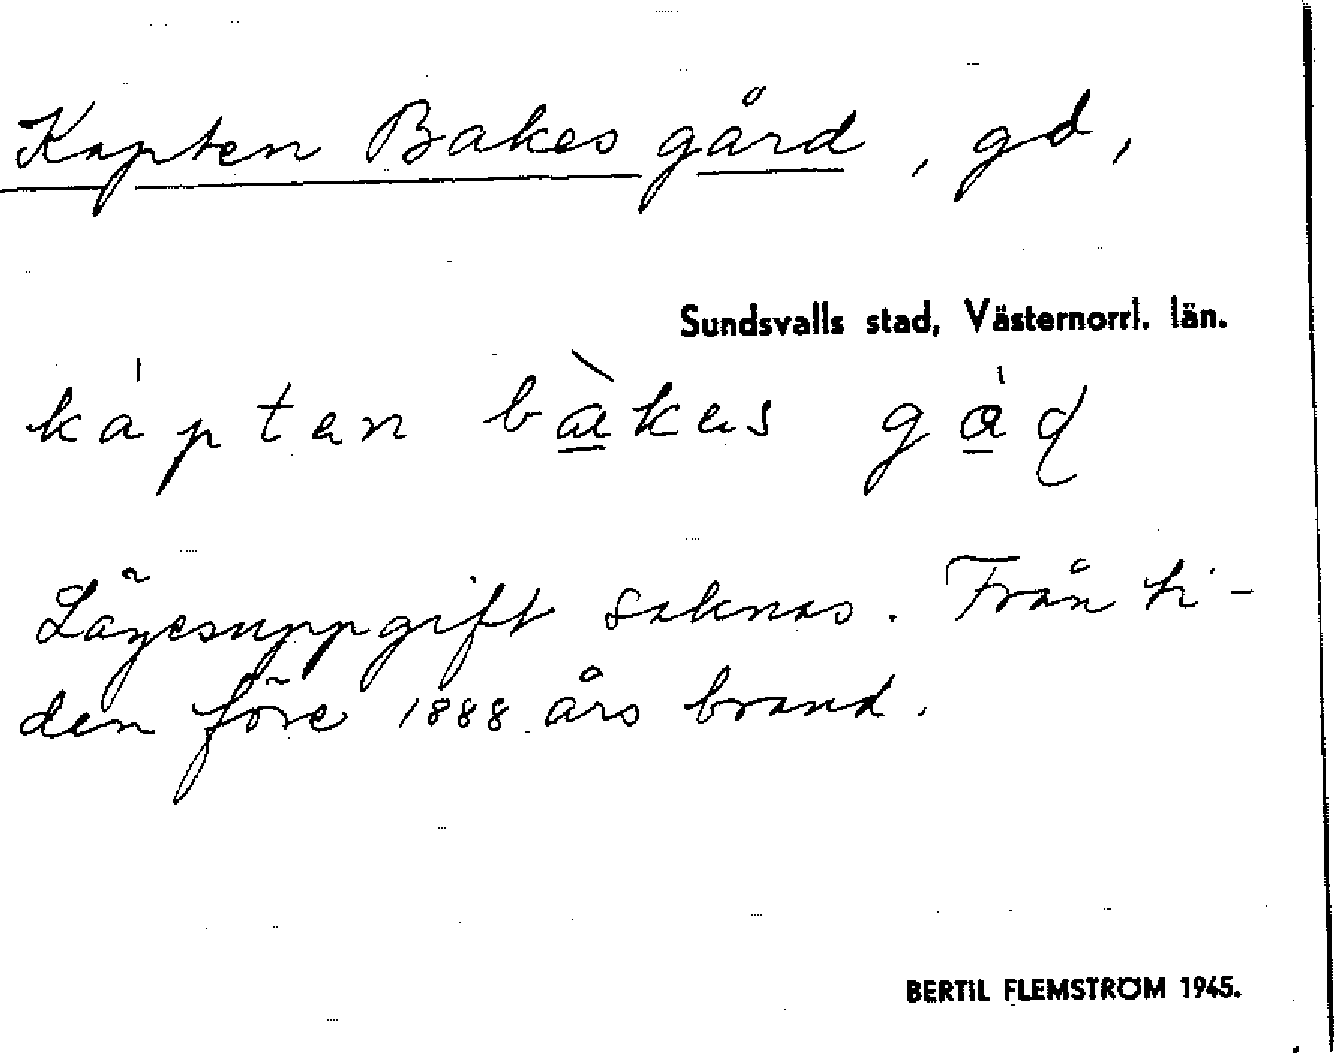 Kapten Bakes gård, gd,
Sundsvalls stad, Västernorrl. län.
kapten bakes
Lägesuppgift saknas. Från ti-
den före 1888 års brand.
BERTIL FLEMSTRÖM 1945.